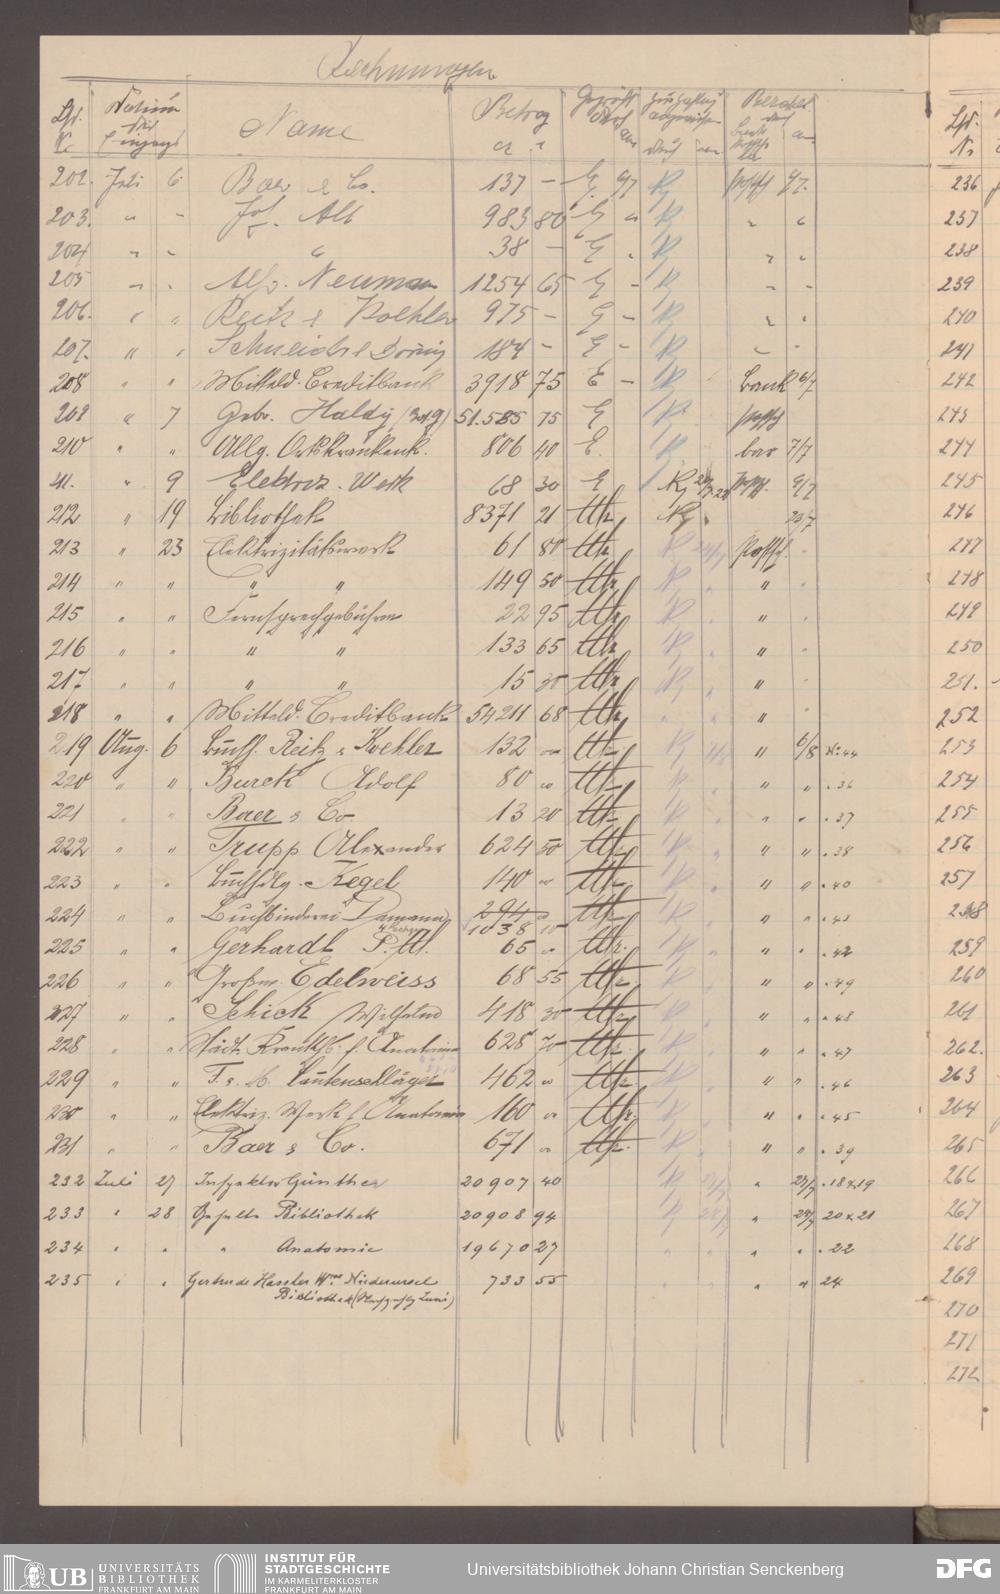 Rechnungen
Lfd. Nr. Datum des Eingangs Name Betrag M ₰ Geprüft durch am Zur Zahlung angewiesen durch am Bezahlt durch Bank Postsch. bar am
202. Juli 6 Baer & Co. 137 – E 9/7 R Postsch 9/7.
203. " " Jos. Alt 983 80 E " R " "
204 " " " 38 – E " R " "
205 " " Alfr. Neumann 1254 65 E – R " "
206. " " Reitz & Koehler 975 – E – R " "
207. " " Schneider & Döring 184 – E – R " "
208 " " Mitteld. Creditbank 3918 75 E – R Bank 6/7
209 " 7 Gebr. Haldy 51.585 75 E R Postsch
210 " " Allg. Ortskrankenk. 806 40 E. R bar 7/7
211. " 9 Elektriz. Werk 68 30 E R Postsch. 9/7
212 " 19 Bibliothek 8371 21 R " 23/7
213 " 23 Elektrizitätswerk 61 80 R 24/7 Postsch. "
214 " " " " 149 50 R " " "
215 " " Fernsprechgebühren 22 95 R " " "
216 " " " " 133 65 R " " "
217 " " " " 15 30 R " " "
218 " " Mitteld. Creditbank 54211 68 " " " "
219 Aug. 6 Buchh. Reitz & Koehler 132 00 R 7/8 " 6/8 Nr. 44
220 " " Burck Adolf 80 00 R " " " " 36
221 " " Baer & Co 13 20 R " " " " 37
222 " " Trupp Alexander 624 50 R " " " " 38
223 " " Buchhdlg. Kegel 140 00 R " " " " 40
224 " " Buchbinderei 294
1038 10 R " " " " 43
225 " " Gerhardt P. W. 65 00 R " " " " 42
226 " " Edelweiss 68 55 R " " " " 49
227 " " Schick Wilhelm 418 30 R " " " " 48
228 " " Städt. Krankhs. f. Anatomie 628 70 R " " " " 47
229 " " F. & M. Lautenschläger 462 00 R " " " " 46
230 " " Elektriz. Werk f. Anatomie 160 00 R " " " " 45
231 " " Baer & Co. 671 00 R " " " " 39
232 Juli 27 Inspektor Günther 20907 40 R 27/7 " 27/7 " 18 & 19
233 " 28 Gehalte Bibliothek 20908 94 R 28/7 " 28/7 20 & 21
234 " " " Anatomie 19670 27 " " " " " 22
235 " " Gertrude Hassler Wwe. Niederursel 733 55 " " " " 24
Bibliothek (Nachzahlg Juni)
Lfd. Nr
236
237
238
239
240
241
242
243
244
245
246
247
248
249
250
251.
252
253
254
255
256
257
258
259
260
261
262.
263
264
265
266
267
268
269
270
271
272
UB UNIVERSITÄTS BIBLIOTHEK FRANKFURT AM MAIN
INSTITUT FÜR STADTGESCHICHTE IM KARMELITERKLOSTER FRANKFURT AM MAIN
Universitätsbibliothek Johann Christian Senckenberg
DFG